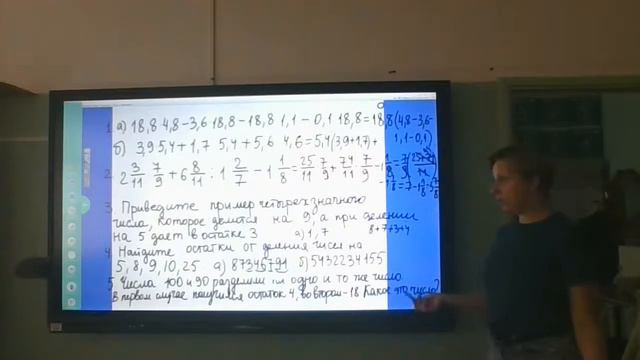 1. а) 18,8 4,8-3,6 18,8-18,8 1,1-0,1 18,8=18,8(4,8-3,6-
1,1-0,1)
б) 3,9 5,4+1,7 5,4+5,6 4,6=5,4(3,9+1,7)+
2. 2 3/11 7/9 + 6 8/11 : 1 2/7 - 1 1/8 = 25/11 7/9 + 74/11 7/9 - 1 1/8 = 7/9
3. Приведите пример четырехзначного
числа, которое делится на 9, а при делении
на 5 дает в остатке 3 а) 1,7 8+7+3+4
4. Найдите остатки от деления чисел на
5, 8, 9, 10, 25 а) 87346791 б) 5432234155
5. Числа 100 и 90 разделили на одно и то же число.
В первом случае получился остаток 4, во втором-18. Какое это число?